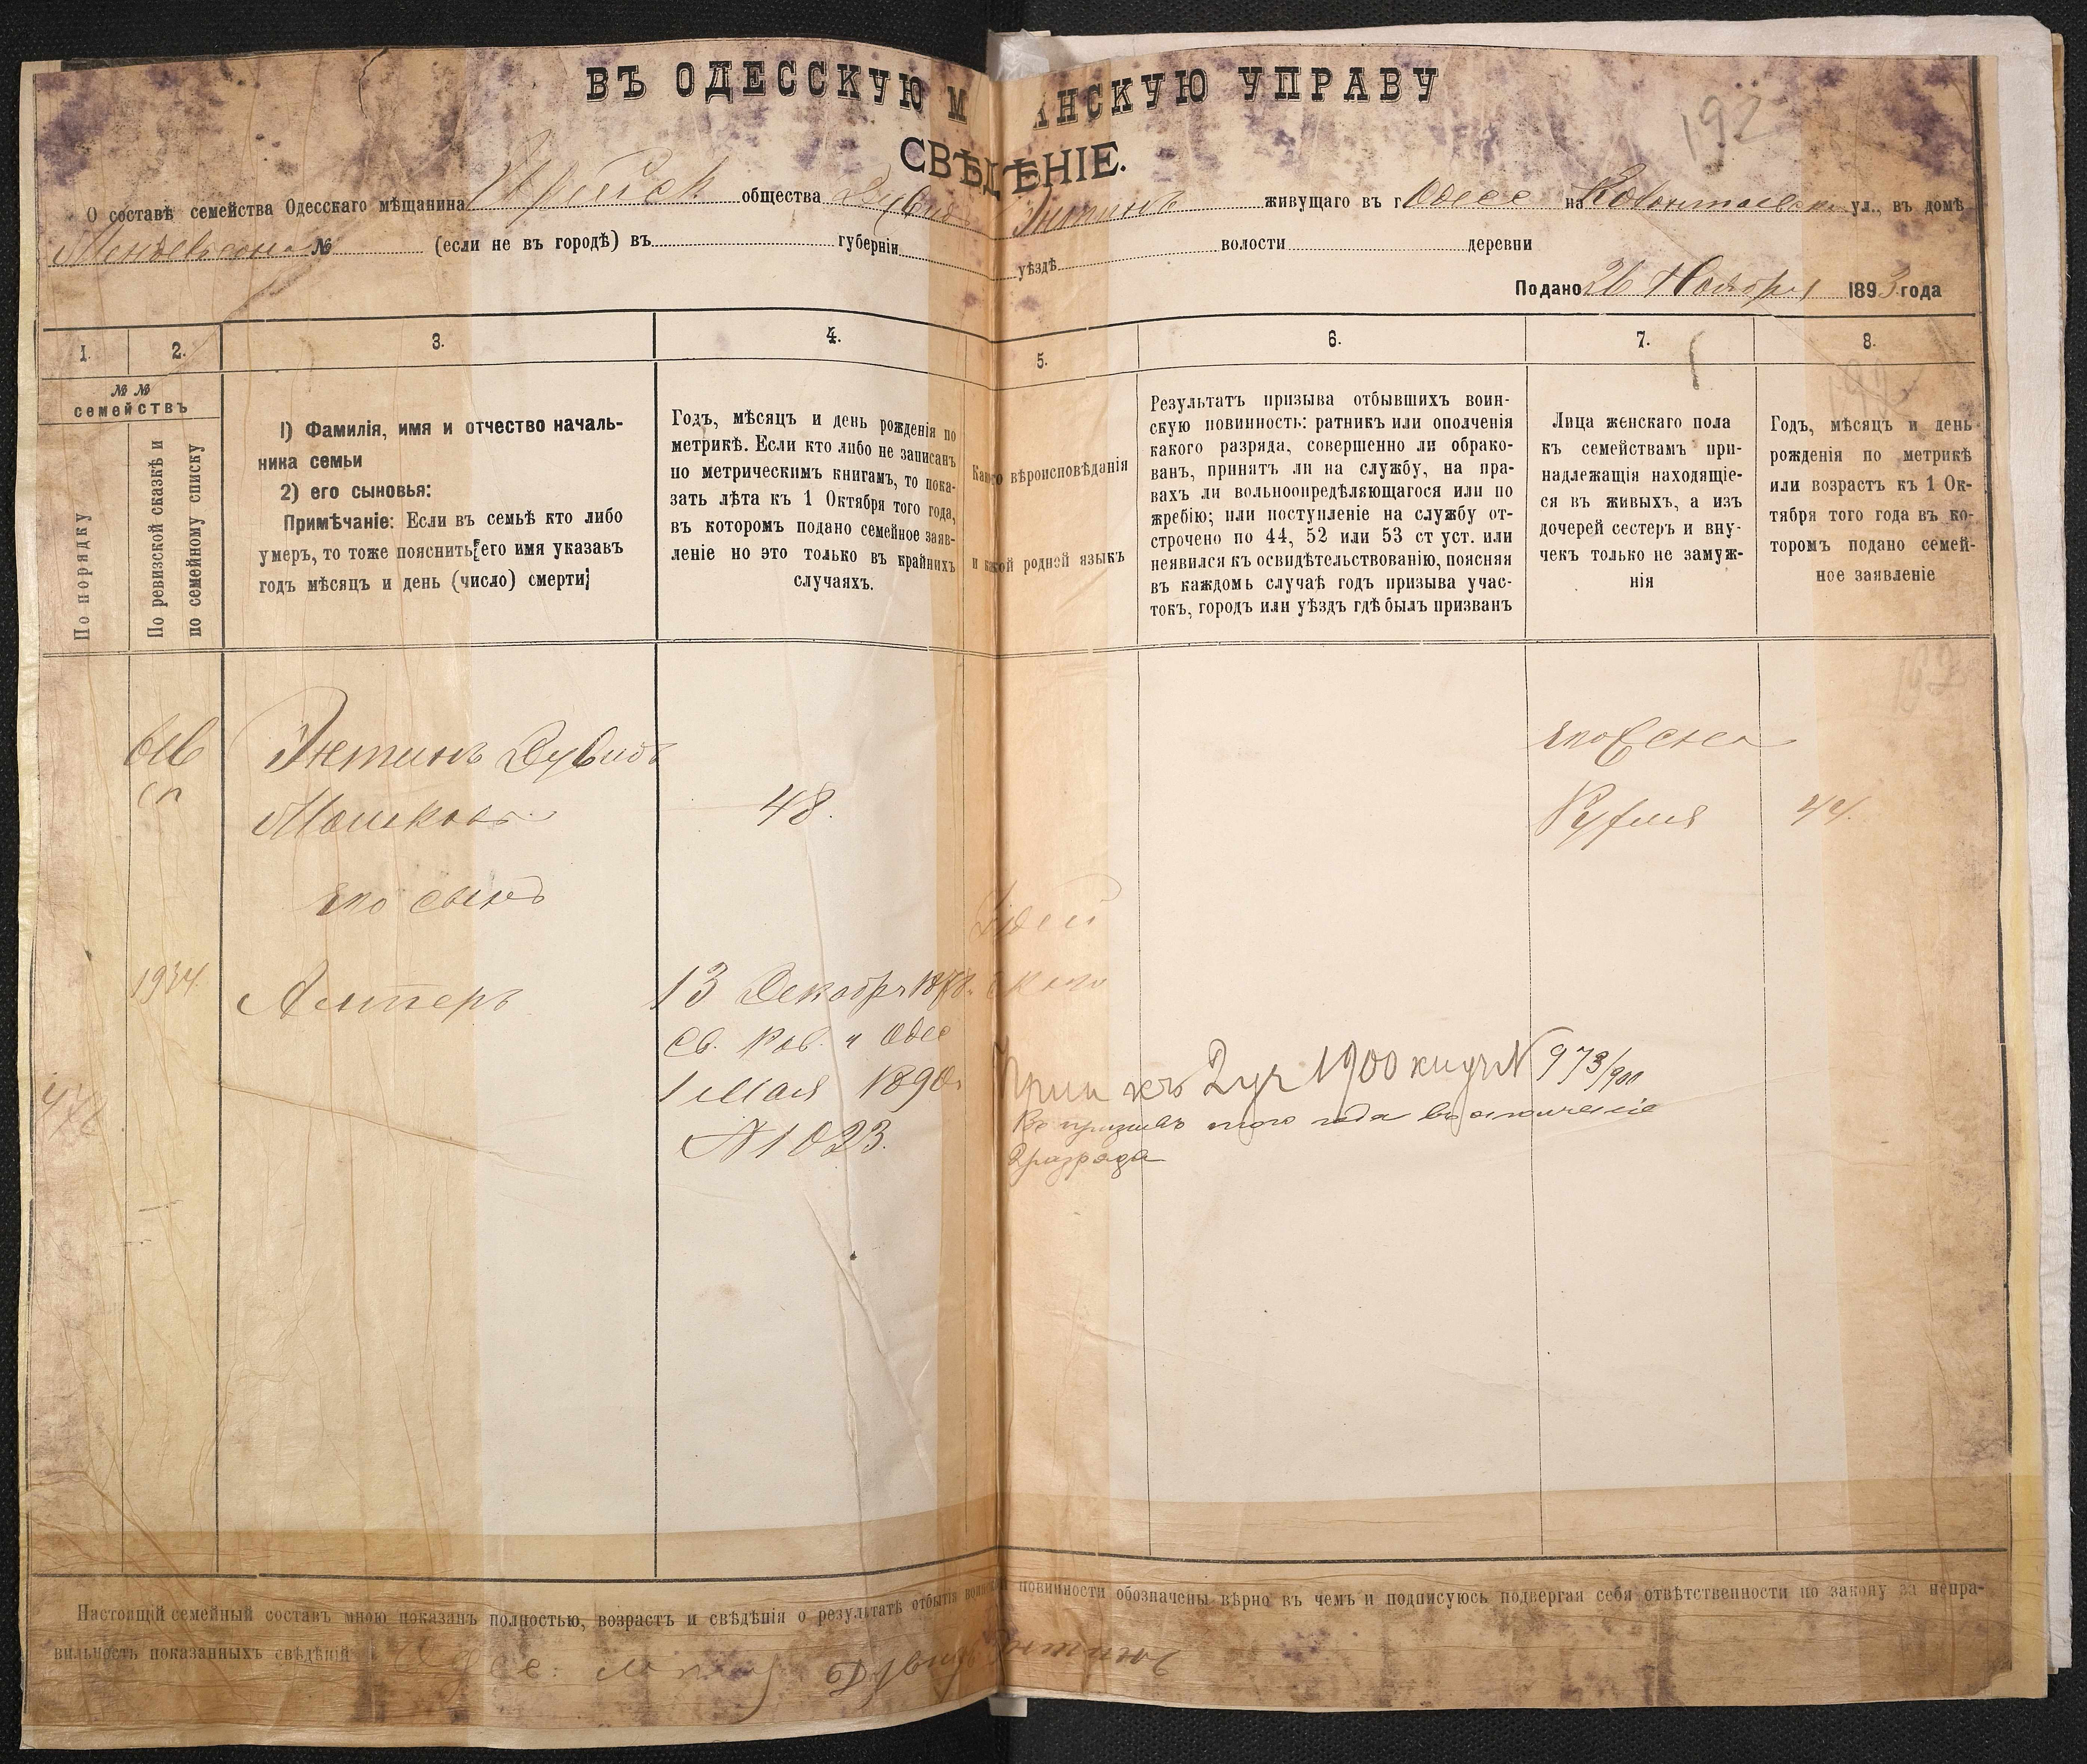 ВЪ ОДЕССКУЮ М АНСКУЮ УПРАВУ
192
СВѢДѢНІЕ.
О составѣ семейства Одесскаго мѣщанина Еврейск общества Дувид Энтинъ живущаго въ г Одесс на ул., въ домѣ
Мендельсона № (если не въ городѣ) въ губерніи уѣздѣ волости деревни
Подано 26 Ноября 1893 года
1. 2. 3. 4. 5. 6. 7. 8.
№ №
семействъ
По порядку
По ревизской сказкѣ и
по семейному списку
1) Фамилія, имя и отчество началь-
ника семьи
2) его сыновья:
Примѣчаніе: Если въ семьѣ кто либо
умеръ, то тоже пояснить его имя указавъ
годъ мѣсяцъ и день (число) смерти;
Годъ, мѣсяцъ и день рожденія по
метрикѣ. Если кто либо не записанъ
по метрическимъ книгамъ, то пока-
зать лѣта къ 1 Октября того года,
въ которомъ подано семейное заяв-
леніе но это только въ крайнихъ
случаяхъ.
Какого вѣроисповѣданія
и какой родной языкъ
Результатъ призыва отбывшихъ воин-
скую повинность: ратникъ или ополченія
какого разряда, совершенно ли обрако-
ванъ, принятъ ли на службу, на пра-
вахъ ли вольноопредѣляющагося или по
жребію; или поступленіе на службу от-
строчено по 44, 52 или 53 ст уст. или
неявился къ освидѣтельствованію, поясняя
въ каждомъ случаѣ годъ призыва учас-
токъ, городъ или уѣздъ гдѣ былъ призванъ
Лица женскаго пола
къ семействамъ при-
надлежащія находящіе-
ся въ живыхъ, а изъ
дочерей сестеръ и вну-
чекъ только не замуж-
нія
Годъ, мѣсяцъ и день
рожденія по метрикѣ
или возрастъ къ 1 Ок-
тября того года въ ко-
торомъ подано семей-
ное заявленіе
192
616
сп
Энтинъ Дувидъ
Мошковъ
48.
его жена
Руфля
44.
его сынъ
Іудей
ского
1934.
Алтеръ
13 Декабря 1878.
Св. Рав. г Одес
1 Мая 1890г
№ 1023.
Прип къ 2 уч 1900 № 973/900
Въ призывъ того года въ ополченіе
2 разряда
Настоящій семейный составъ мною показанъ полностью, возрастъ и свѣдѣнія о результатѣ отбытія воинской повинности обозначены вѣрно въ чемъ и подписуюсь подвергая себя отвѣтственности по закону за непра-
вильность показанныхъ свѣдѣній Дувидъ Энтинъ